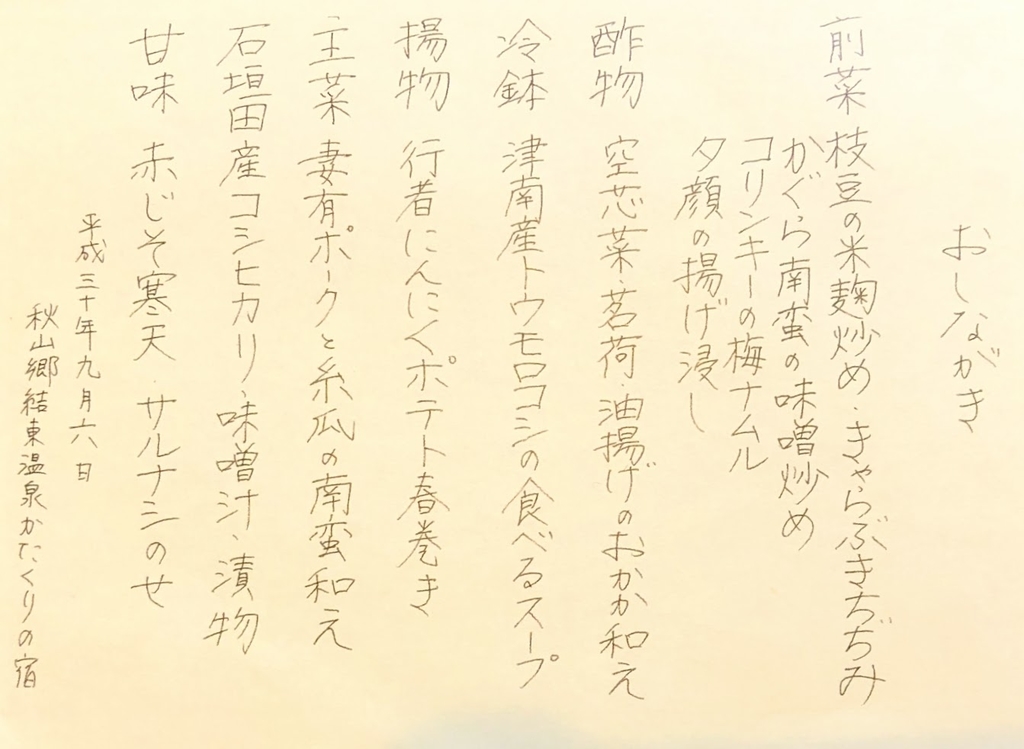 おしながき
前菜 枝豆の米麹炒め・きゃらぶきちぢみ
かぐら南蛮の味噌炒め
コリンキーの梅ナムル
夕顔の揚げ浸し
酢物 空芯菜・茗荷・油揚げのおかか和え
冷鉢 津南産トウモロコシの食べるスープ
揚物 行者にんにくポテト春巻き
主菜 妻有ポークと糸瓜の南蛮和え
石垣田産コシヒカリ、味噌汁、漬物
甘味 赤じそ寒天・サルナシのせ
平成三十年九月六日
秋山郷結東温泉かたくりの宿